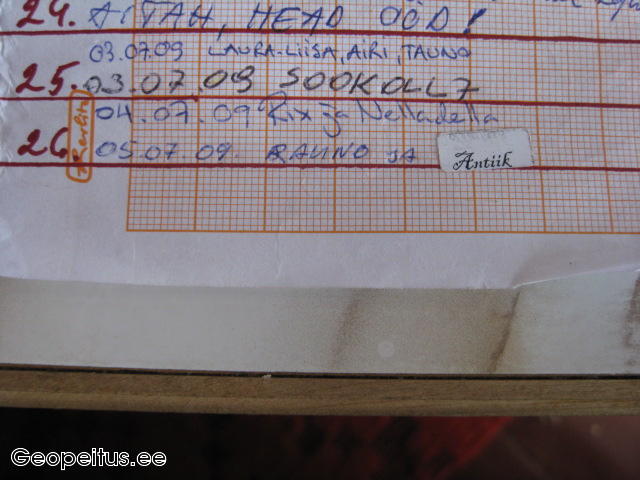 24. AITÄH, HEAD ÖÖD!
03.07.09 LAURA-LIISA, AIRI, TAUNO
25. 03.07.09 SOOKOLL7
04.07.09 Rix ja Nelladella
26. Kerlin 05.07.09. RAUNO JA Antiik
Geopeitus.ee